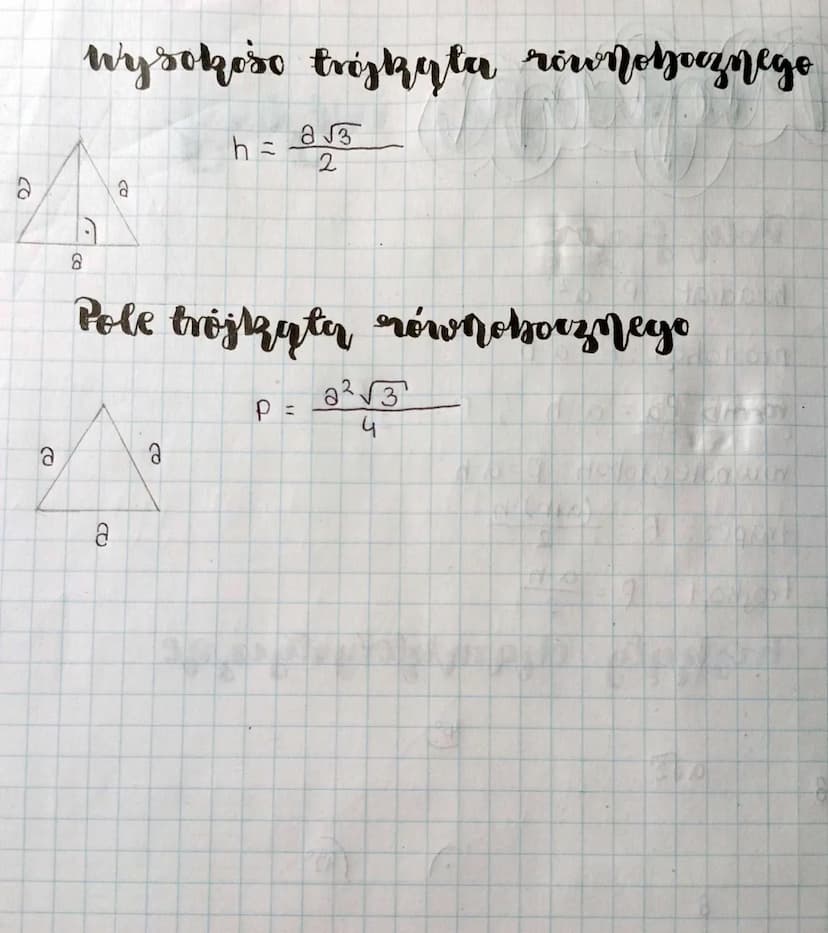 Wysokość trójkąta równobocznego
h = a√3 / 2
a a
a
Pole trójkąta równobocznego
P = a²√3 / 4
a a
a